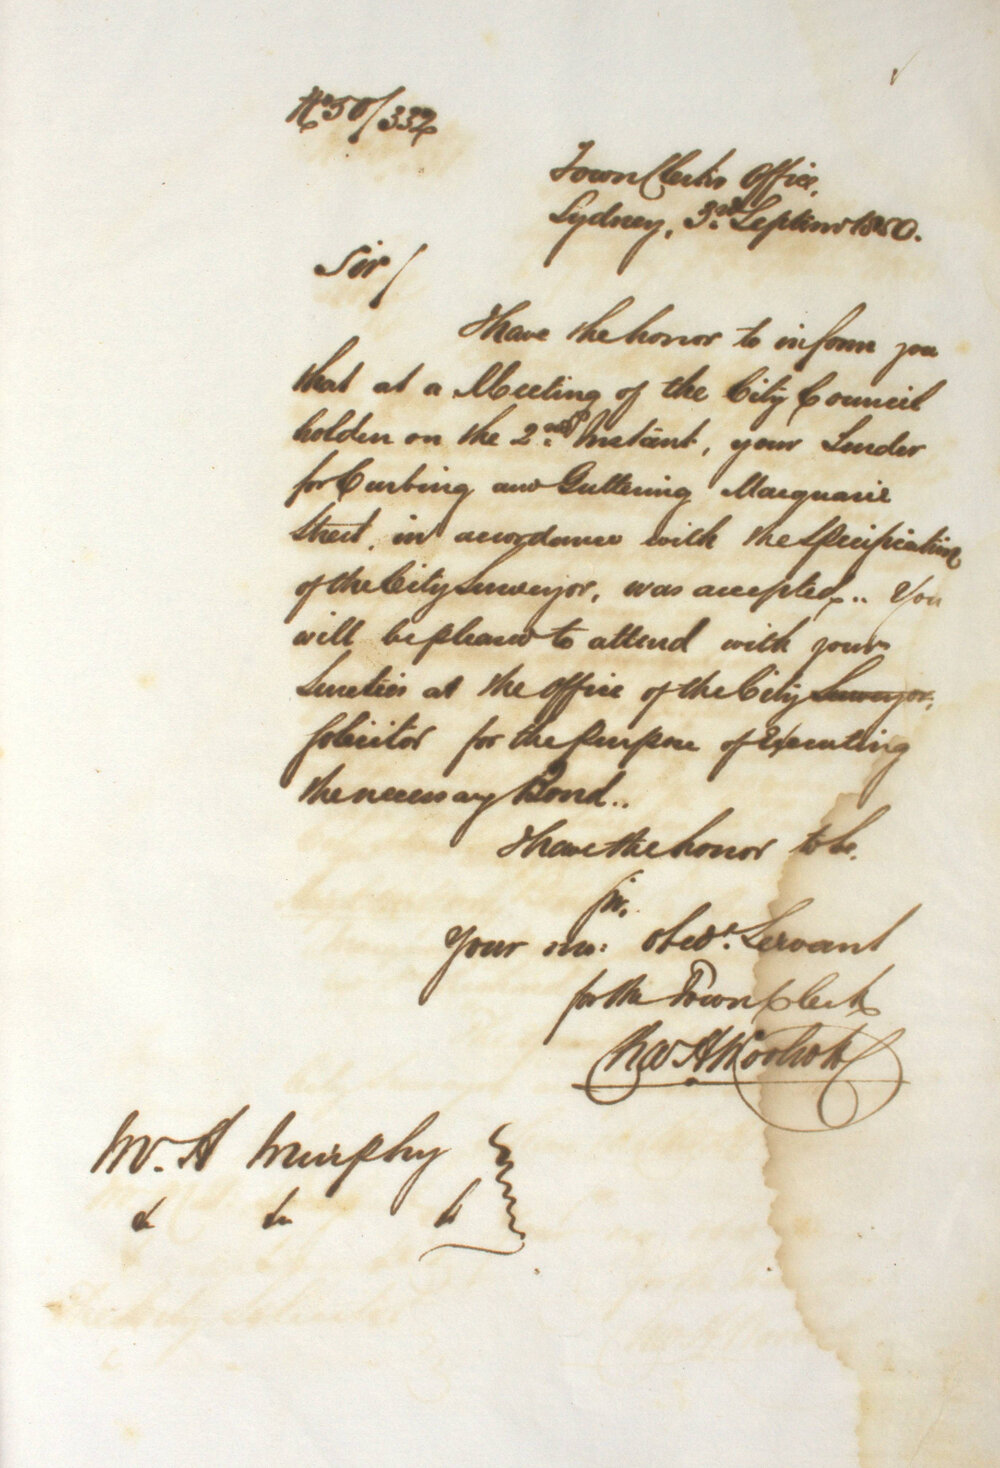 No 50/332
Town Clerks Office,
Sydney, 3rd Septemr 1850.
Sir/
I have the honor to inform you
that at a Meeting of the City Council
holden on the 2nd Instant, your Tender
for Curbing and Guttering Macquarie
Street, in accordance with the Specification
of the City Surveyor, was accepted.. You
will be pleased to attend with your
Sureties at the Office of the City Surveyor,
Solicitor for the purpose of Executing
the necessary Bond..
I have the honor to be,
Sir,
Your mo: obedt. Servant
for the Town Clerk
Mr. A Murphy
&c &c &c